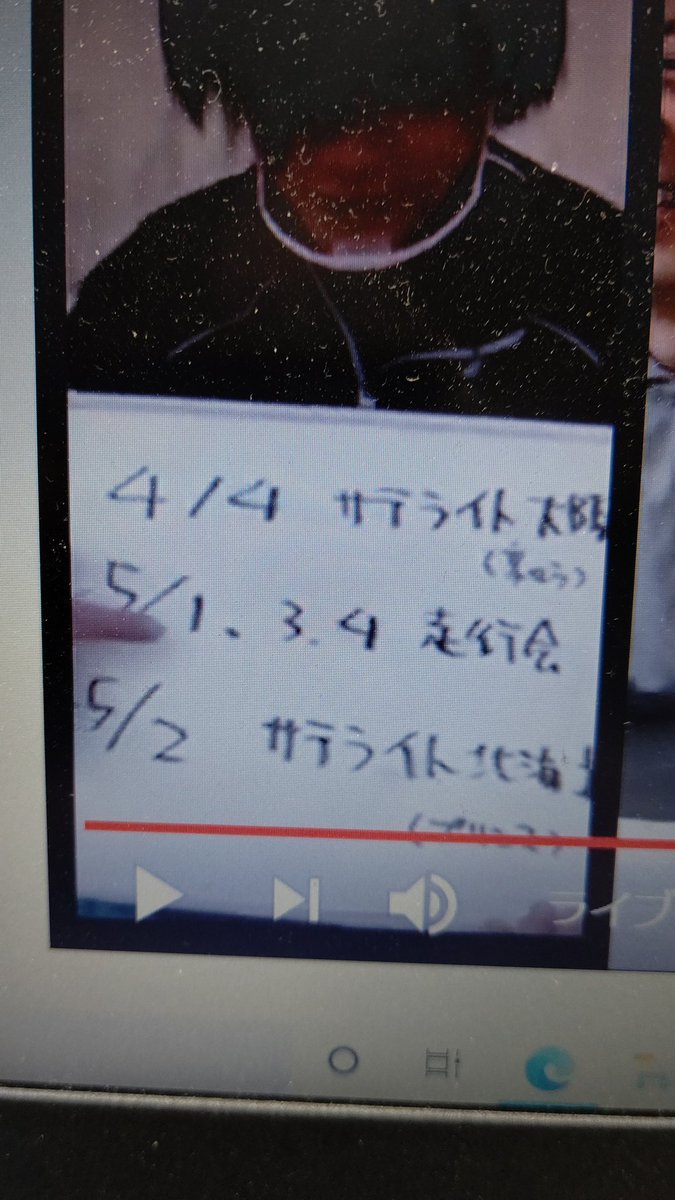 4/4 サテライト 大阪
(京セラ)
5/1、3.4 走行会
5/2 サテライト 北海
ライブ